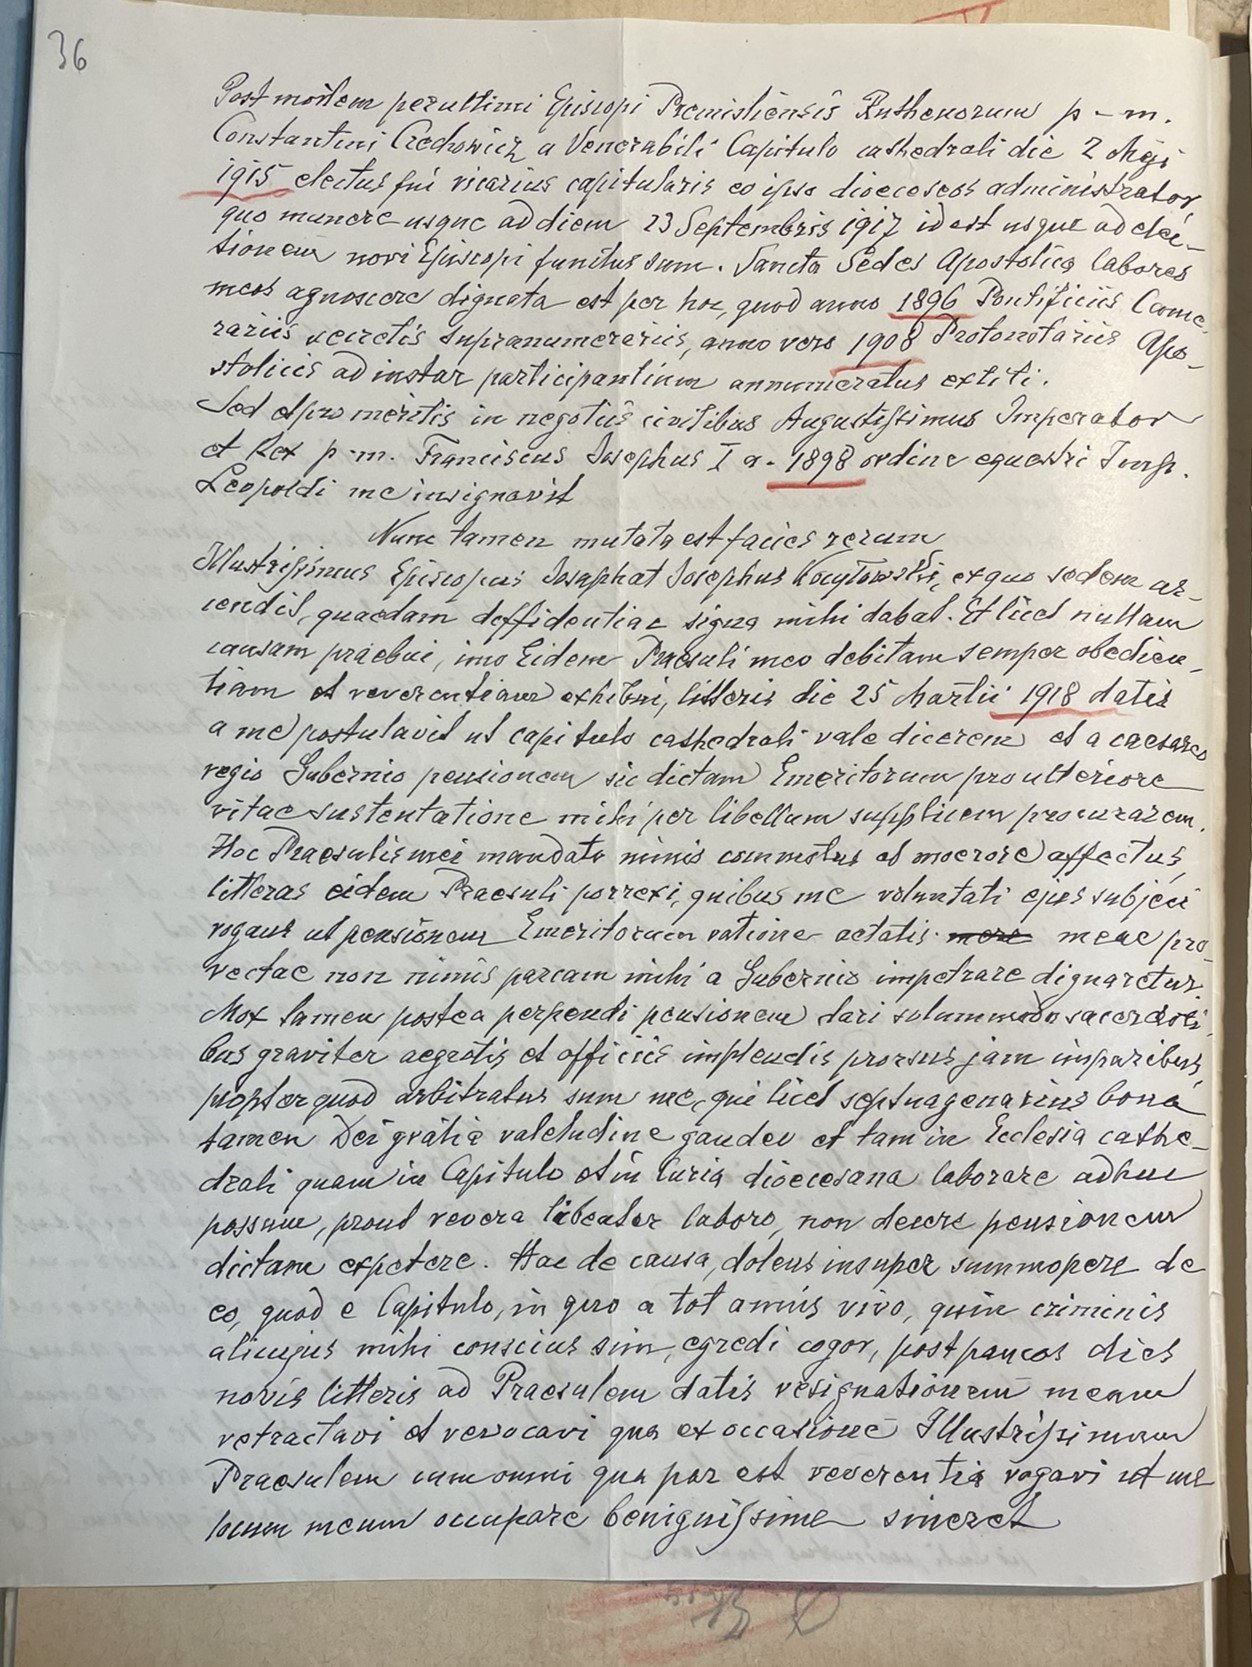 36
Post mortem penultimi Episcopi Premisliensis Ruthenorum p-m.
Constantini Czechowicz a Venerabili Capitulo cathedrali die 2 Maji
1915 electus fui vicarius capitularis eo ipso dioeceseos administrator
quo munere usque ad diem 23 Septembris 1917 id est usque ad elec-
tionem novi Episcopi functus sum. Sancta Sedes Apostolica labores
meos agnoscere dignata est per hoc, quod anno 1896 Pontificiis Came-
rariis secretis supranumerariis, anno vero 1908 Protonotariis Apo-
stolicis ad instar participantium annumeratus extiti.
Sed et pro meritis in negotiis civilibus Augustissimus Imperator
et Rex p-m. Franciscus Josephus I a. 1898 ordine equestri Imp.
Leopoldi me insignavit
Nunc tamen mutata est facies rerum
Illustrissimus Episcopus Josaphat Josephus Kocyłowski, ex quo sedem as-
cendit, quaedam deffidentiae signa mihi dabat. Et licet nullam
causam praebui, imo Eidem Praesuli meo debitam semper obedien-
tiam et reverentiam exhibui, litteris die 25 Martii 1918 datis
a me postulavit ut capitulo cathedrali vale dicerem et a caesareo
regio Gubernio pensionem sic dictam Emeritorum pro ulteriore
vitae sustentatione mihi per libellum supplicem procurarem.
Hoc Praesulis mei mandato nimis commotus et moerore affectus,
litteras eidem Praesuli porrexi, quibus me voluntati ejus subjeci
rogans ut pensionem Emeritorum ratione aetatis meae pro-
vectae non nimis parcam mihi a Gubernio impetrare dignaretur.
Mox tamen postea perpendi pensionem dari solummodo sacerdoti-
bus graviter aegrotis et officiis implendis prorsus jam imparibus,
propter quod arbitratus sum me, qui licet septuagenarius bona
tamen Dei gratia valetudine gaudeo et tam in Ecclesia cathe-
drali quam in Capitulo et in Curia dioecesana laborare adhuc
possum, prout revera libenter laboro, non decere pensionem
dictam expetere. Hac de causa, dolens insuper summopere de
eo, quod e Capitulo, in quo a tot annis vivo, quin criminis
alicujus mihi conscius sim, egredi cogor, post paucos dies
novis litteris ad Praesulem datis resignationem meam
retractavi et revocavi qua ex occasione Illustrissimum
Praesulem cum omni qua par est reverentia rogavi ut me
locum meum occupare benignissime sineret